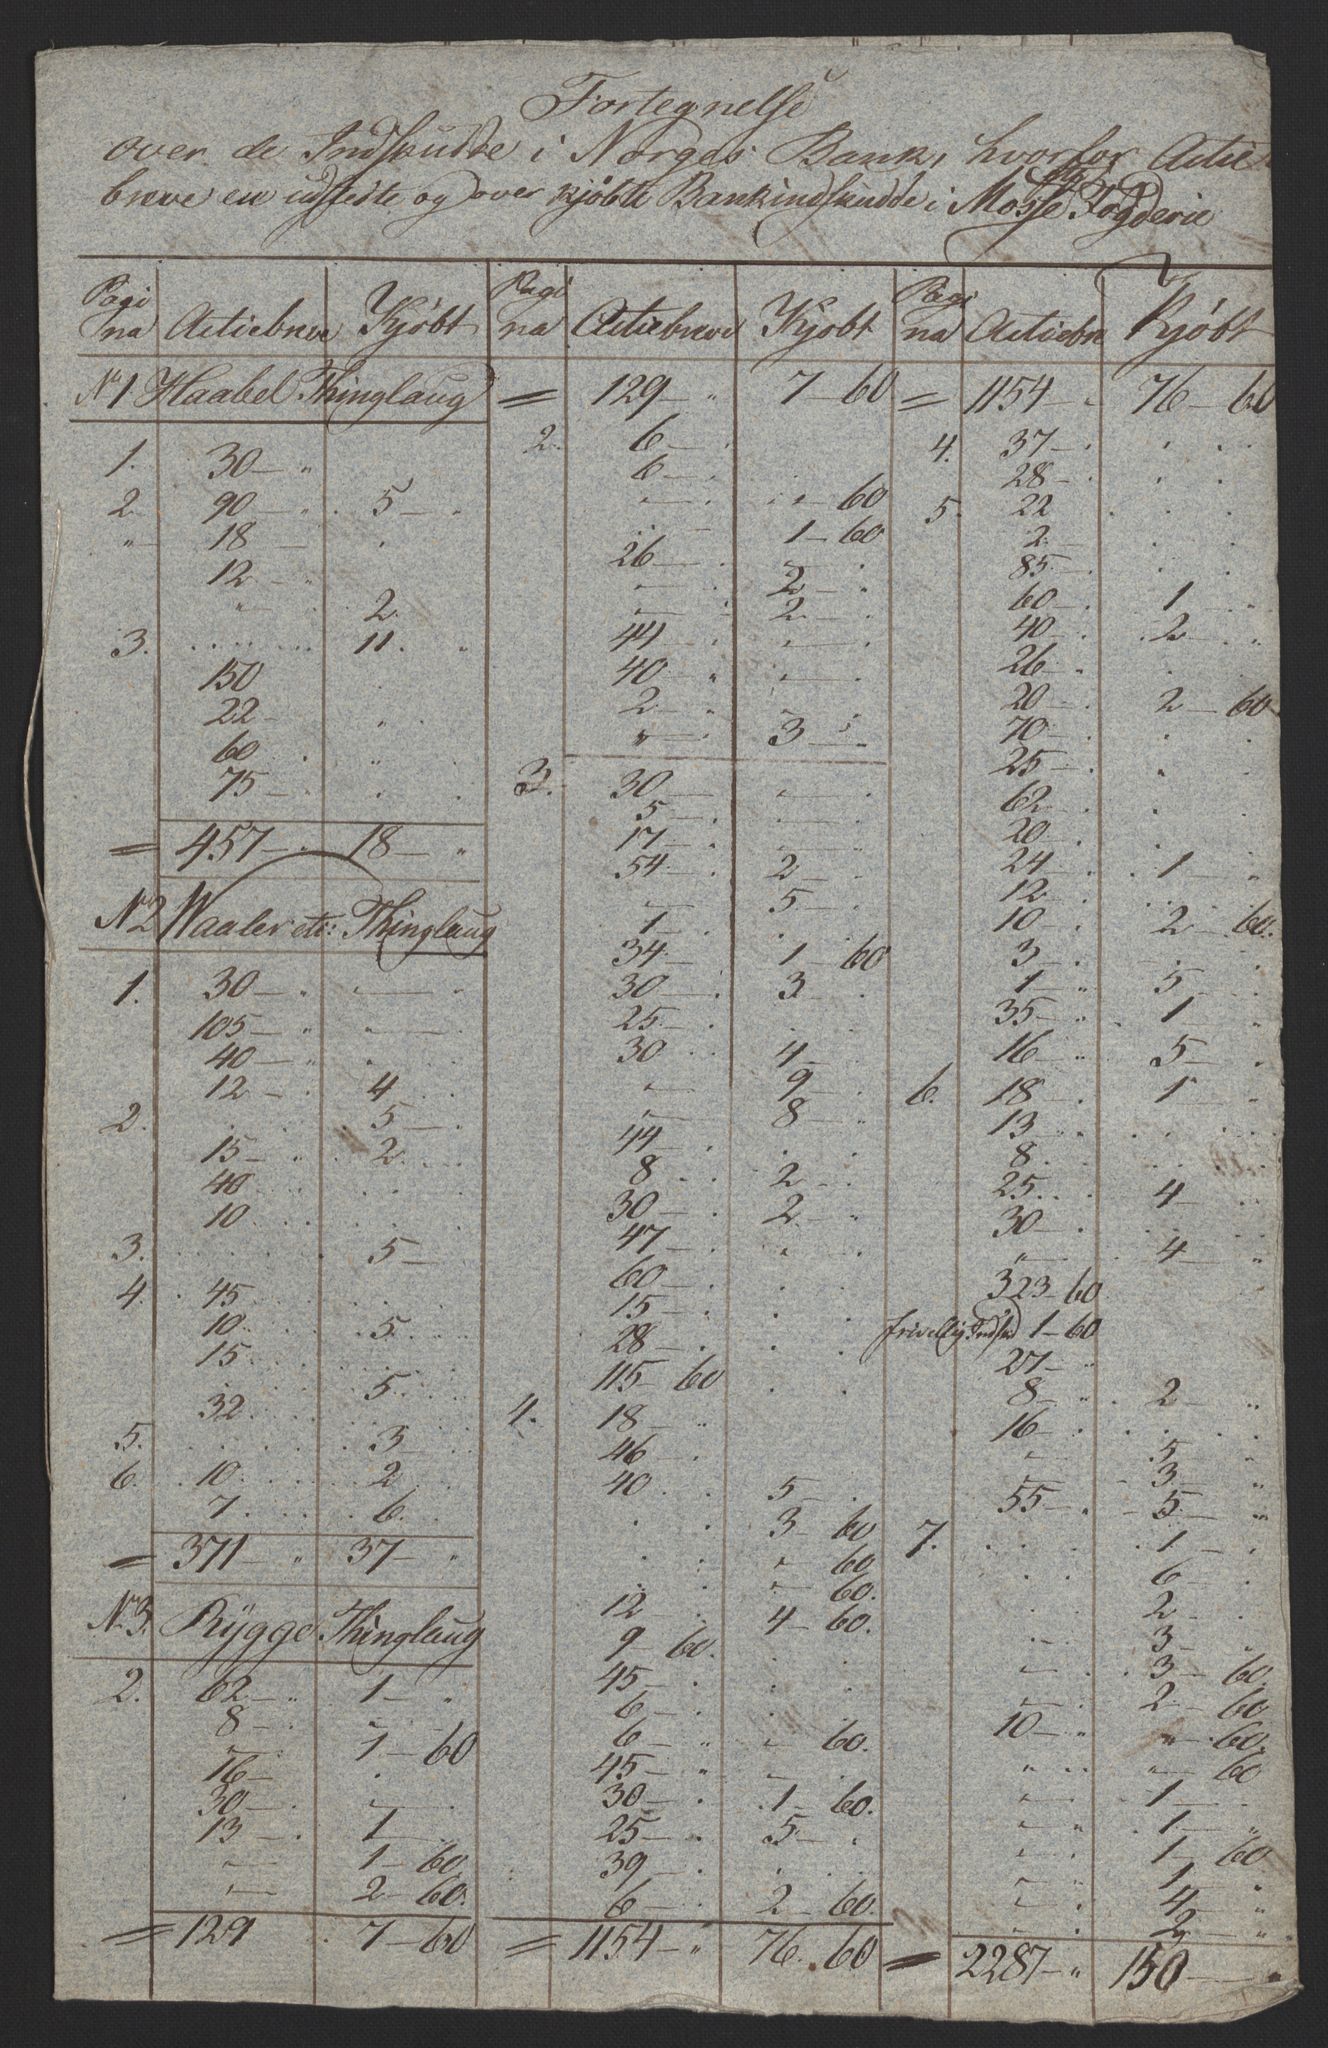 Fortegnelse
over de Indskudde i Norges Bank, hvorfor Actie
breve ere udstedte og over kjøbte Bankindskudde i Mosse Fogderie
Pagi
na Actiebreve Kjøbt
No 1 Haabel Thinglaug
1. 30 — "
2. 90 — " 5 — "
" 18 —
12 — "
" — 2.
3. . . . . 11. "
150
22 —
60
75 —
= 457 — " 18 — "
No 2 Waaler etc: Thinglaug
1. 30 — " —
105 — " " —
40 — "
12 — 4
2. . . 5 — .
15 — 2 . .
40 . .
10 . . .
3. . . . 5 —
4. 45 . .
10 . . 5 . .
15 . .
5 . .
32 . . .
5. . . . 3 —
6. 10 . . 2
7 . . 6 .
= 371 — " 37 — "
No 3. Rygge Thinglaug
2. 62 — " 1 — "
8 — .
" — 1 — 60
16 — .
30 — . —
13 — . 1 —
" — 1 — 60
" — 2 — 60.
= 129 7 — 60
Pagi
na Actiebreve Kjøbt
= 129 — " 7 — 60
2. 6 — "
6 — .
" — " — 60
. . 1 — 60
26 — .
" — 2 — "
" — 2 — .
44 — . " —
40 — " " —
2 — "
" — 3 — "
3. 30 — " —
5 — . —
17 — . —
54 — 2 — .
" — 5 — .
1 — .
34 — 1 — 60
30 — . 3 .
25 — .
30 . . 4 — .
" — 9 — .
" — 8 — "
44 — .
8 . . 2 — .
30 — . 2 — "
47 — . "
60 — .
15 — .
28 — .
115 — 60
4. 18 — "
46 — .
40 . . 5 — .
. . 3 — 60
. . " 60
. . " — 60.
12 . 4 — 60.
9 — 60.
45 — .
6 — .
6 — " " — 60.
45 — " —
30 — . 1 — 60.
25 — " 5 — .
39 — .
6 — . 2 — 60.
= 1154 — " 76. 60
Pagi
na Actiebre Kjøbt
= 1154 — " 76 — 60
4. 37 — .
28 — .
5. 22
2 —
85 — .
60 — . 1 — "
40 — . 2 — "
26 — .
20 — . 2 — 60
70 — .
25 — .
62 — .
20 —
24 — . 1 — "
12 — .
10 — . 2 — 60.
3 — .
1 — " 5 — .
35 — " 1 — "
16 — " 5 — .
6. 18 — . 1 — "
13 — .
8 . .
25 . . 4 — "
30 — .
" — 4 — "
323 — 60
frivillig Indsk 1 — 60
27 — "
8 — " 2 — "
16 — .
" — 5 — .
3 — "
55 — . 5 — "
7. . . 1 — .
. . 6 — .
. . 2 — .
" — 3 — "
" — 3 — 60
" — 2 — 60
10 — " " — 60.
" — " — 60
" — 1 — .
" — " 1 — "
" — " 1 — 60
" — 1 — "
" — 4 — "
" — 2 — "
= 2287 — " 150 — "